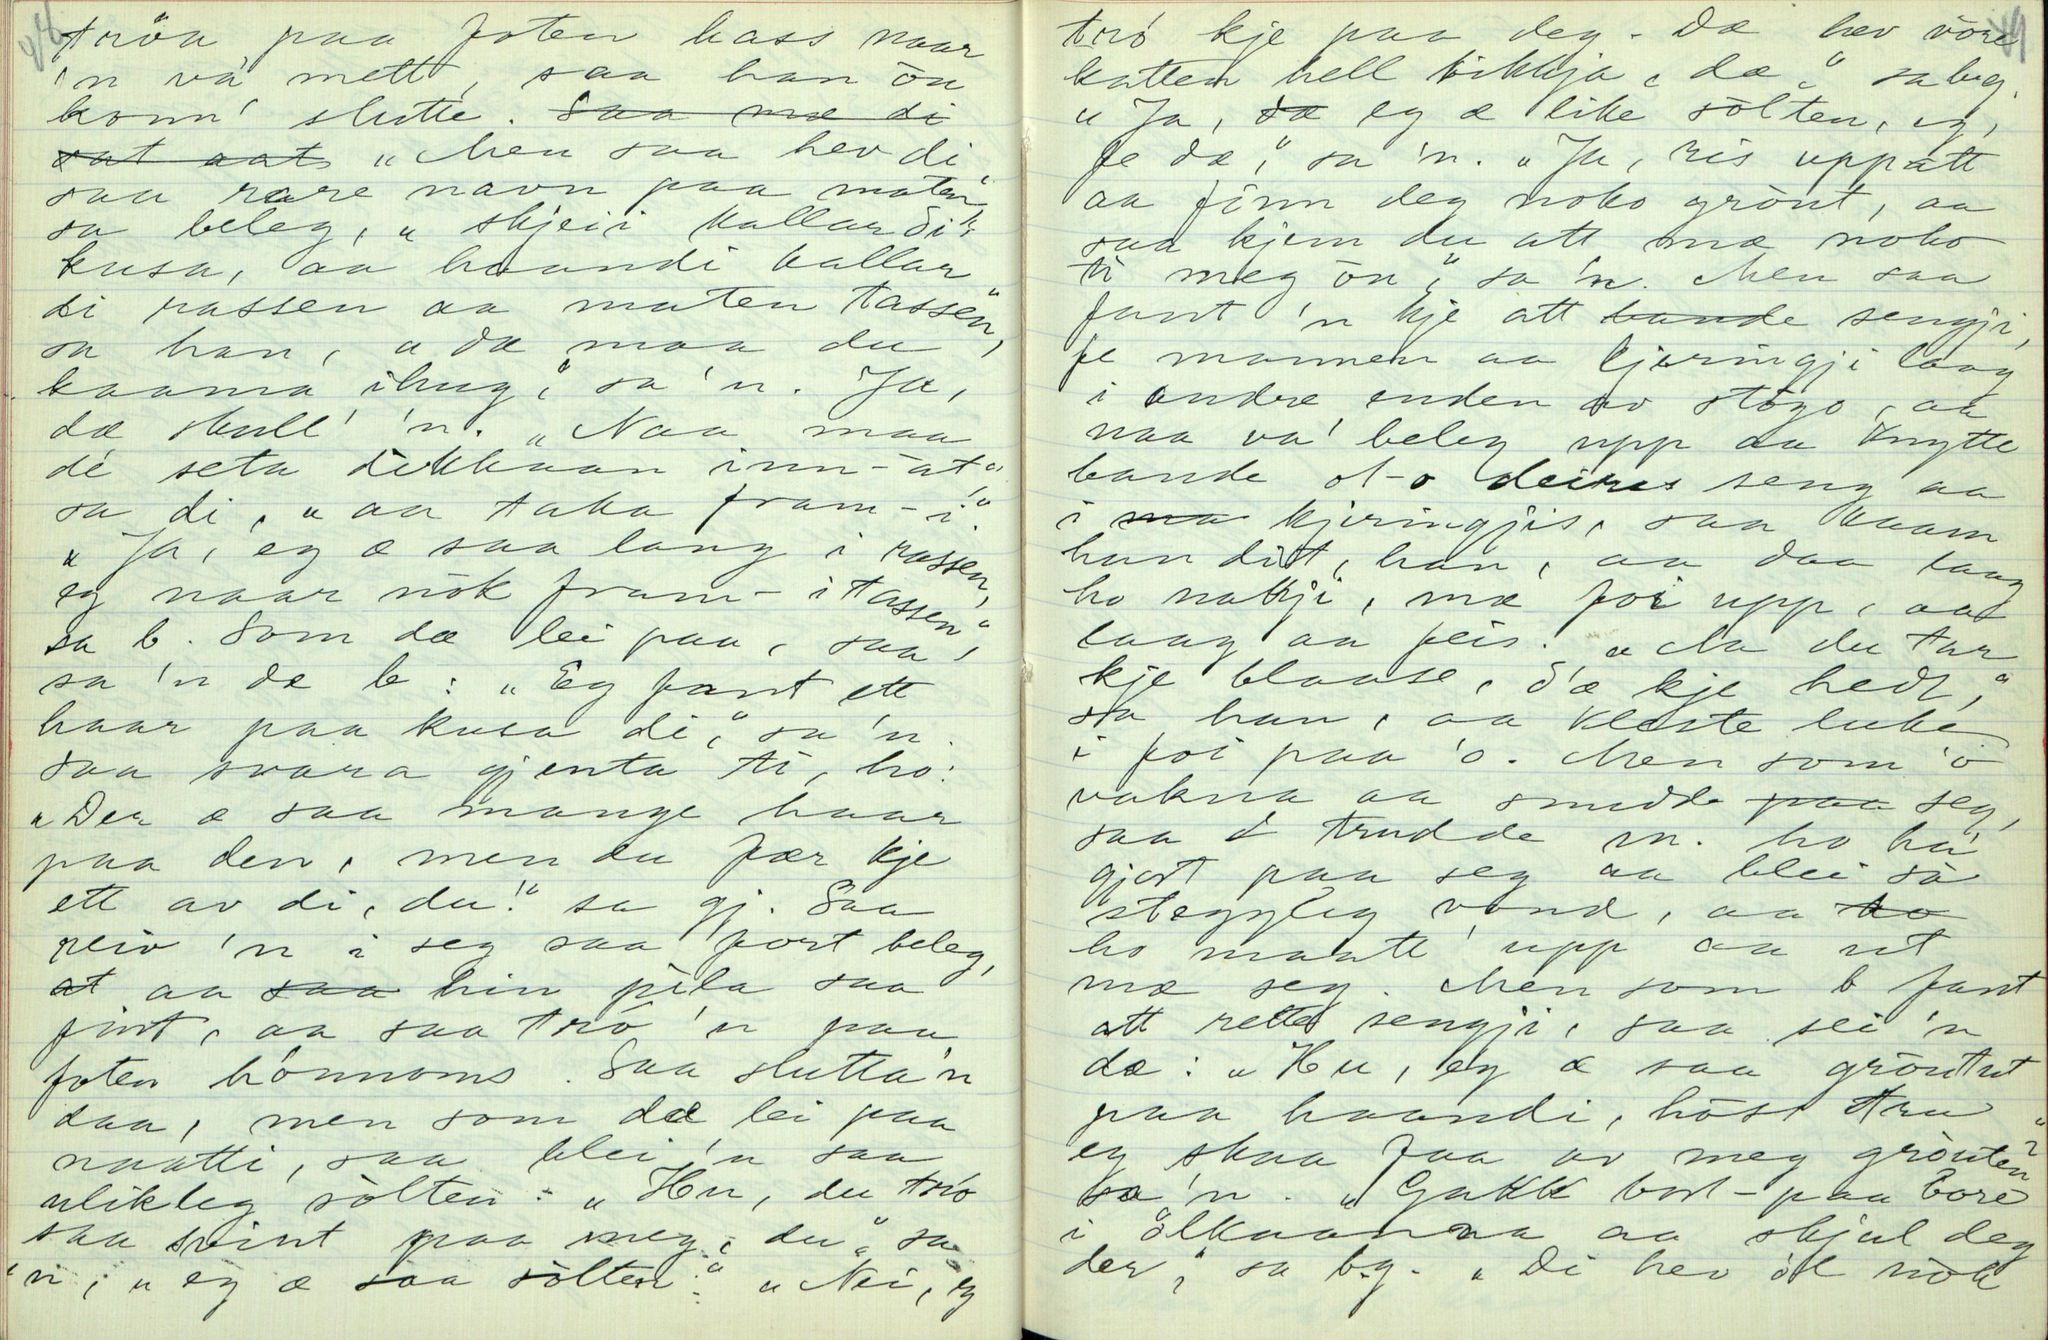 98
tröa paa foten hass naar
'n va' mett, saa han ōu
konn' slutte. Saa mæ di
sat aat „Men saa hev di
saa rare navn paa maten,"
sa beleg, „skjeii kallar di
kusa, aa haandi kallar
di rassen aa maten tassen",
sa han, „da maa du
kaama ihug," sa 'n. Ja,
dæ skull' 'n. „Naa maa
de seta dikkaan inn-åt,"
sa di, „aa taka fram-i."
„Ja, eg æ saa lang i rassen,
eg naar nōk fram-i tassen",
sa b. Som dæ lei paa, saa
sa 'n dæ b: „Eg fant ett
haar paa kusa di," sa 'n.
Saa svara gjenta ti, ho:
„Der æ saa mange haar
paa den, men du fær kje
ett av di, du!" sa gj. Saa
reiv 'n i seg saa fort beleg,
at aa saa hin pila saa
fint, aa saa trö 'n paa
foten hōnnoms. Saa slutta 'n
daa, men som dæ lei paa
naatti, saa blei 'n saa
ulikleg sōlten: „Hu, du trö
saa svint paa meg, du" sa
'n, „eg æ saa sōlten." „Nei, eg
trö kje paa deg. Dæ hev vōre
katten hell bikkja, dæ," sa beg.
„Ja, dæ eg æ like sōlten, eg,
fe dæ," sa 'n. „Ja, ris uppatt
aa finn deg noko grōut, aa
saa kjem du att mæ noko
ti meg ōu," sa 'n. Men saa
fant 'n kje att bande sengji,
fe mannen aa kjeringji laag
i andre enden av stōgo, aa
naa va' beleg upp aa knytte
bande ol-o deires seng aa
i ma kjeringjis, saa kaam
han dit, han, aa daa laag
ho nakji, mæ foi upp, aa
laag aa feis. „Na du tar
kje blaase, d'æ kje hedt,"
sa han, aa kleste luke
i foi paa 'o. Men som 'o
vakna aa smidde paa seg,
saa trudde m. ho ha'
gjort paa seg aa blei så
steggyleg vond, aa ho
ho maatte upp aa ut
mæ seg. Men som b fant
att rette sengji, saa sei 'n
dæ: „Hu, eg æ saa grōutut
paa haandi, hōss tru
eg skaa faa av meg grōuten"?
sa 'n. „Gakk bort-paa bore
i ōlkaanna aa skjul deg
der," sa b.g. „Di hev ōl nōk